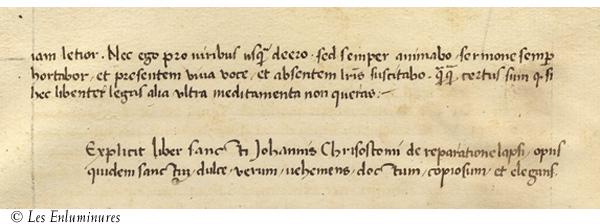 iam letior. Nec ego pro viribus usq̃ deero. sed semper animabo, sermone semp
hortabor, et presentem viva voce, et absentem lr̃is suscitabo. q̃q̃ certus sum q. si
hec libenter legas alia ultra meditamenta non queras:~
Explicit liber sancti Johannis Chrisostomi de reparatione lapsi, opus
quidem sanctum, dulce, verum, vehemens, doctum, copiosum, et elegans.
© Les Enluminures